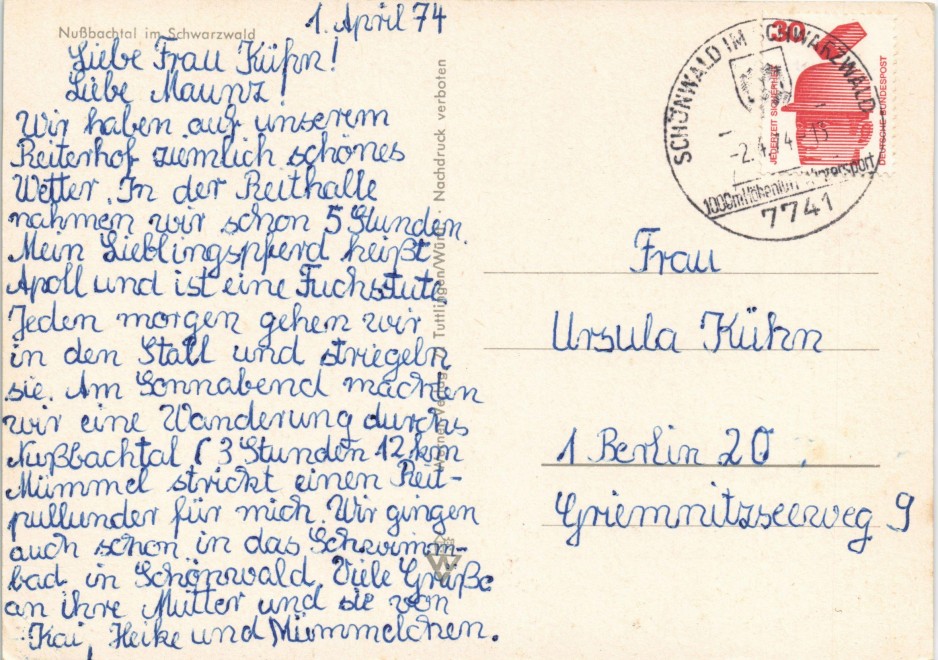 Nußbachtal im Schwarzwald
1. April 74
Liebe Frau Kühn!
Liebe Maunz!
Wir haben auf unserem
Reiterhof ziemlich schönes
Wetter. In der Reithalle
nahmen wir schon 5 Stunden.
Mein Lieblingspferd heißt
Apoll und ist eine Fuchsstute.
Jeden morgen gehen wir
in den Stall und striegeln
sie. Am Sonnabend machten
wir eine Wanderung durchs
Nußbachtal (3 Stunden 12 km
Mümmel strickt einen Reit-
pullunder für mich. Wir gingen
auch schon in das Schwimm-
bad in Schönwald. Viele Grüße
an ihre Mutter und sie von
Kai, Heike und Mümmelchen.
Verlag Tuttlingen/Würt. · Nachdruck verboten
W
SCHÖNWALD IM SCHWARZWALD
-2.4.74-15
1000m Höhenluft Wintersport
7741
30
JEDERZEIT SICHERHEIT
DEUTSCHE BUNDESPOST
Frau
Ursula Kühn
1 Berlin 20
Griemnitzseeweg 9